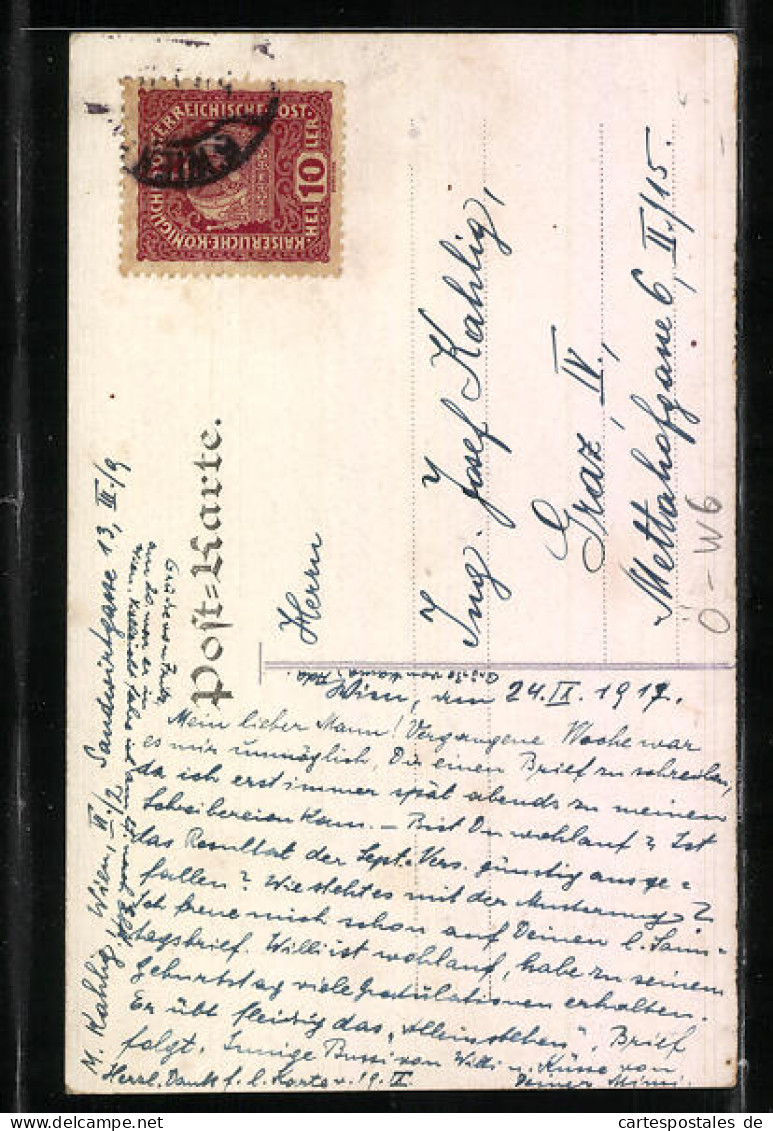 KAISERLICHE·KÖNIGLICHE ÖSTERREICHISCHE·POST
HELLER
10
WIEN
Post=Karte.
Herrn
Ing. Josef Kahlig,
Graz IV.,
Mettahofgasse 6, II./15.
Ö-W6
M. Kahlig, Wien, II/2 Sandwirtgasse 13, III./9
Grüße von
Wien, am 24.IX.1917.
Mein lieber Mann! Vergangene Woche war
es mir unmöglich, Dir einen Brief zu schreiben,
da ich erst immer spät abends zu meinen
Schreibereien kam. – Bist Du wohlauf? Ist
das Resultat der Sept.-Vers. günstig ausge=
fallen? Wie steht es mit der Musterung?
Ich freue mich schon auf Deinen l. Sam=
tagsbrief. Willi ist wohlauf, habe zu seinem
Geburtstag viele Gratulationen erhalten.
Er übt fleißig das „Alleinstehen". Brief
folgt. Innige Bussi von Willi u. Küsse von
Deiner Mimi.
Herzl. Dank f. l. Karte v. 19. IX.
cartespostales de